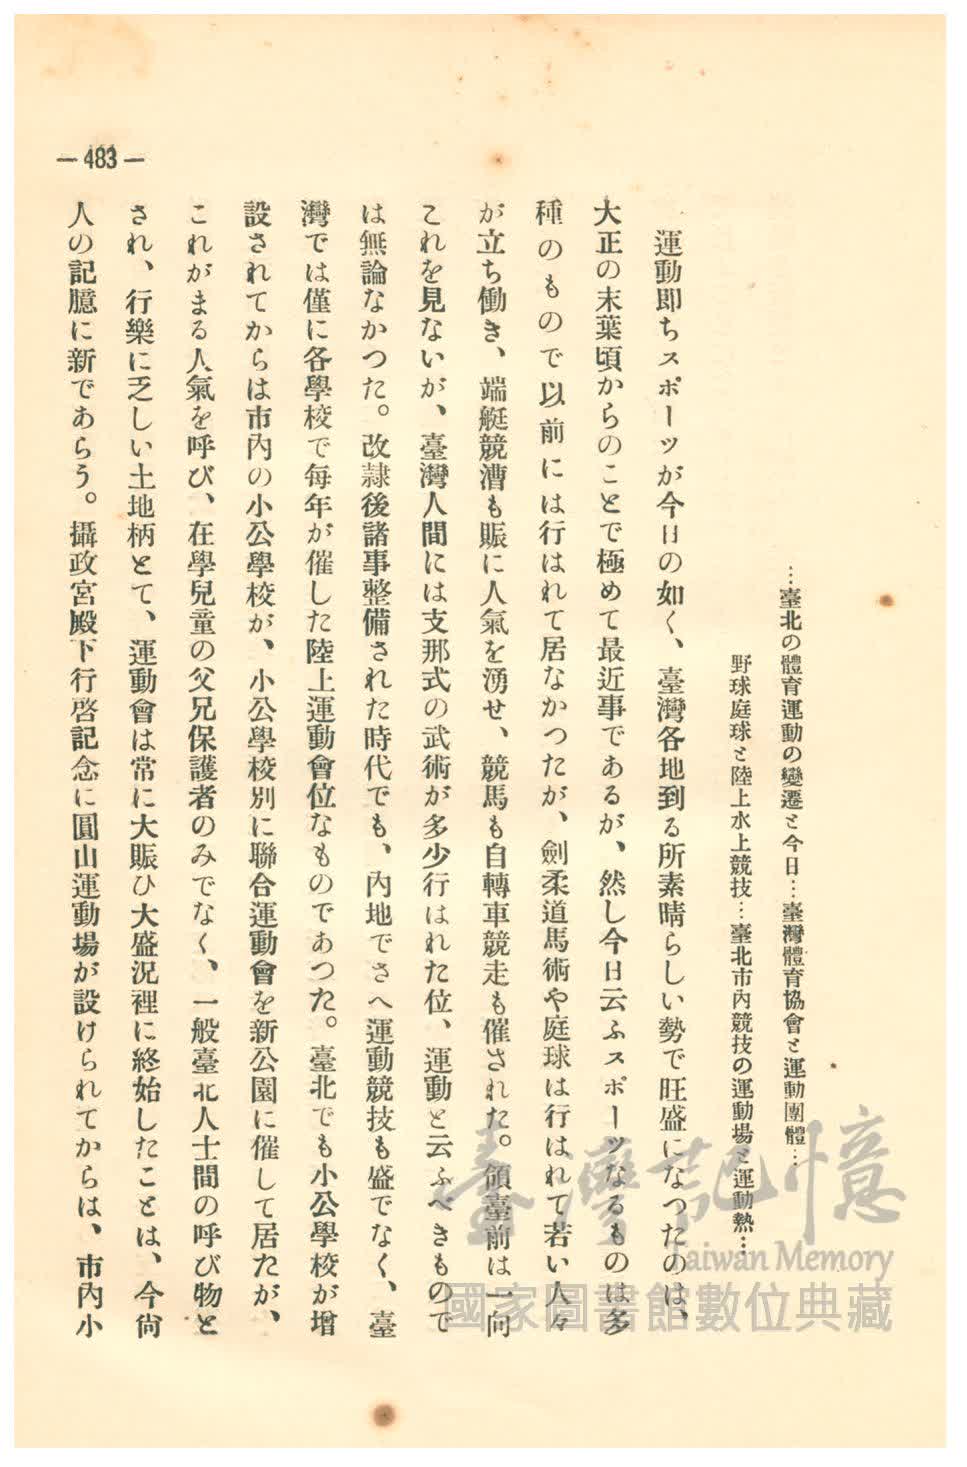 …臺北の體育運動の變遷と今日…臺灣體育協會と運動團體…
野球庭球と陸上水上競技…臺北市內競技の運動場と運動熱…
運動卽ちスポーツが今日の如く、臺灣各地到る所素晴らしい勢で旺盛になつたのは、
大正の末葉頃からのことで極めて最近事であるが、然し今日云ふスポーツなるものは多
種のもので以前には行はれて居なかつたが、劍柔道馬術や庭球は行はれて若い人々
が立ち働き、端艇競漕も賑に人氣を湧せ、競馬も自轉車競走も催された。領臺前は一向
これを見ないが、臺灣人間には支那式の武術が多少行はれた位、運動と云ふべきもので
は無論なかつた。改隷後諸事整備された時代でも、內地でさへ運動競技も盛でなく、臺
灣では僅に各學校で每年が催した陸上運動會位なものであつた。臺北でも小公學校が增
設されてからは市內の小公學校が、小公學校別に聯合運動會を新公園に催して居たが、
これがまる人氣を呼び、在學兒童の父兄保護者のみでなく、一般臺北人士間の呼び物と
され、行樂に乏しい土地柄とて、運動會は常に大賑ひ大盛況裡に終始したことは、今尙
人の記臆に新であらう。攝政宮殿下行啓記念に圓山運動場が設けられてからは、市內小
— 483 —
臺灣記憶
Taiwan Memory
國家圖書館數位典藏